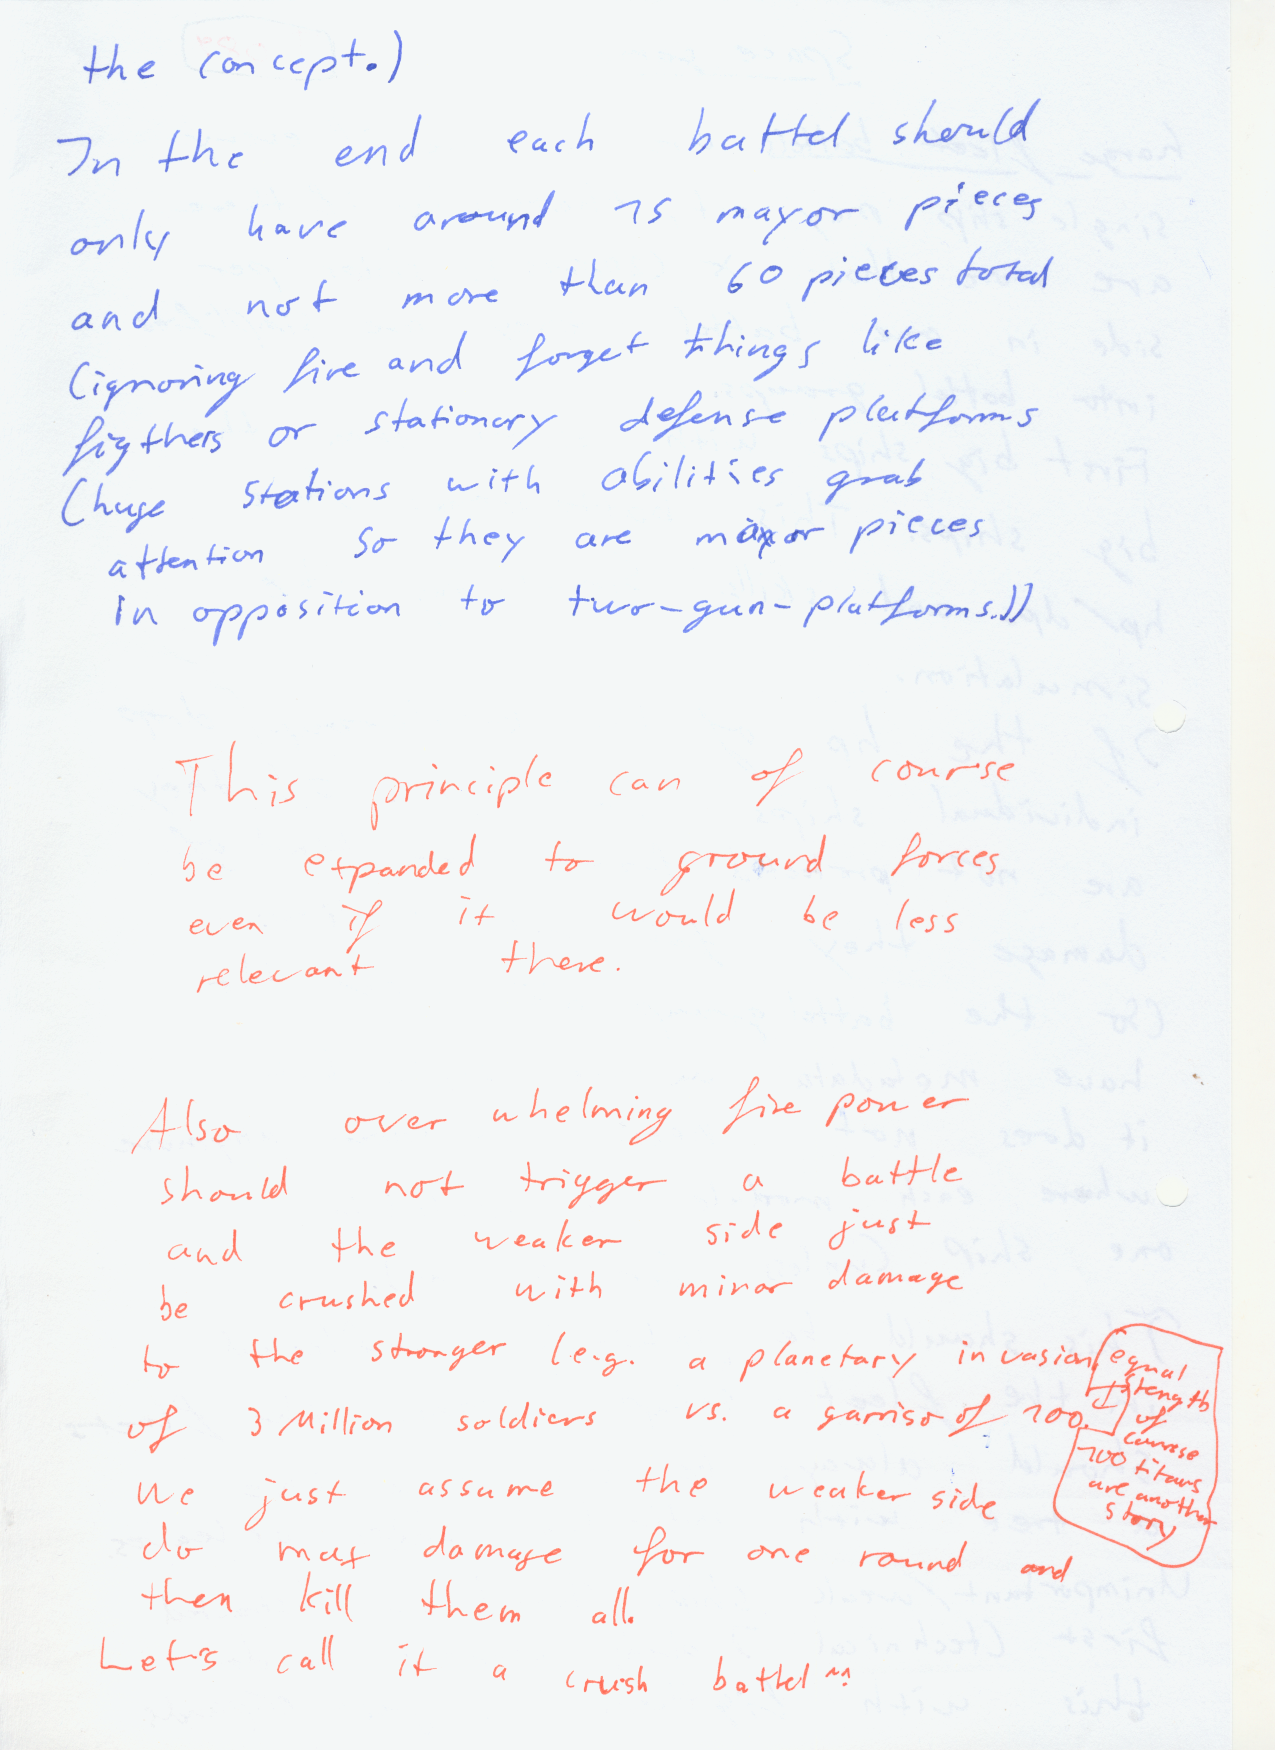 the concept.)
In the end each battel should
only have around 15 mayor pieces
and not more than 60 pieces total
(ignoring fire and forget things like
figthers or stationary defense platforms
(huge stations with abilities grab
attention so they are major pieces
in opposition to two-gun-platforms.))
This principle can of course
be expanded to ground forces
even if it would be less
relevant there.
Also over whelming fire power
should not trigger a battle
and the weaker side just
be crushed with minor damage
to the stronger (e.g. a planetary invasion
of 3 Million soldiers vs. a garriso of 100.
equal
stength
of
course
100 titans
are another
story
We just assume the weaker side
do max damage for one round and
then kill them all.
Let's call it a crush battel ^^